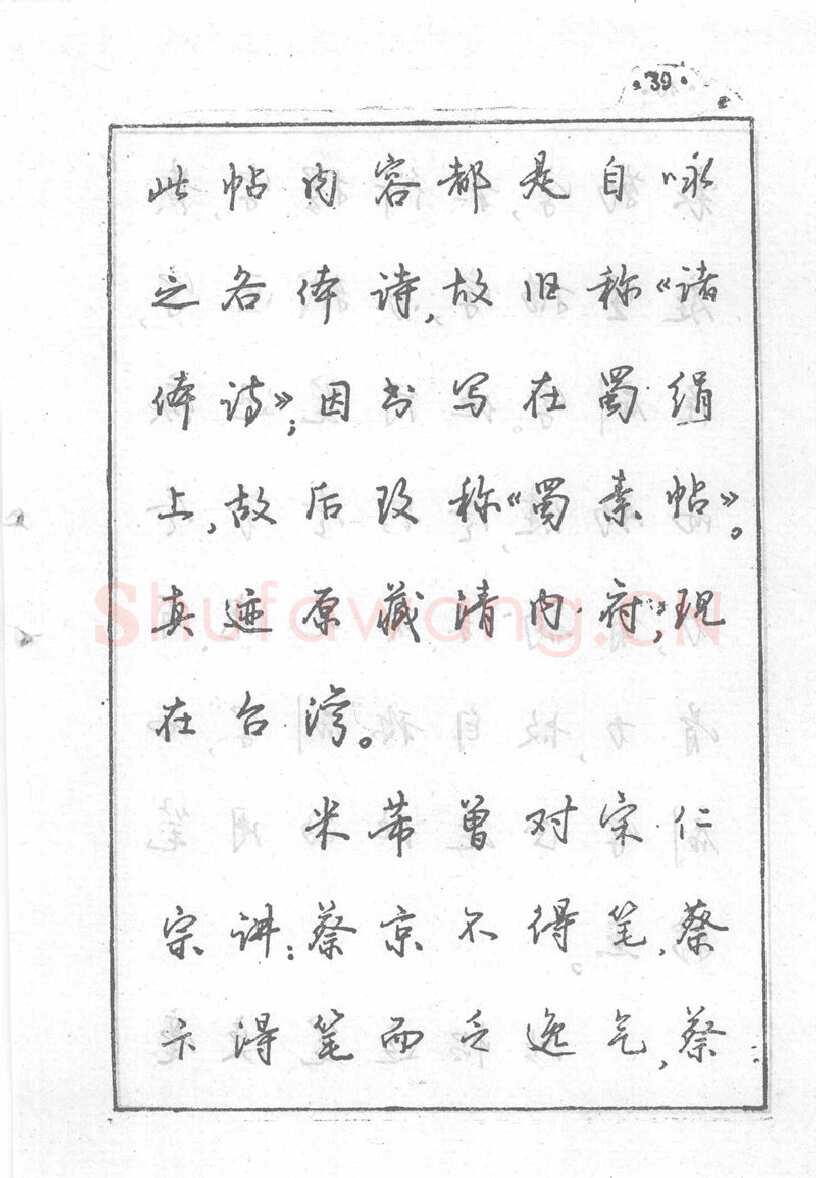 39
此帖内容都是自咏
之各体诗,故旧称《诸
体诗》;因书写在蜀绢
上,故后改称《蜀素帖》。
真迹原藏清内府,现
在台湾。
米芾曾对宋仁
宗讲:蔡京不得笔,蔡
卞得笔而乏逸气,蔡
Shufawang.CN